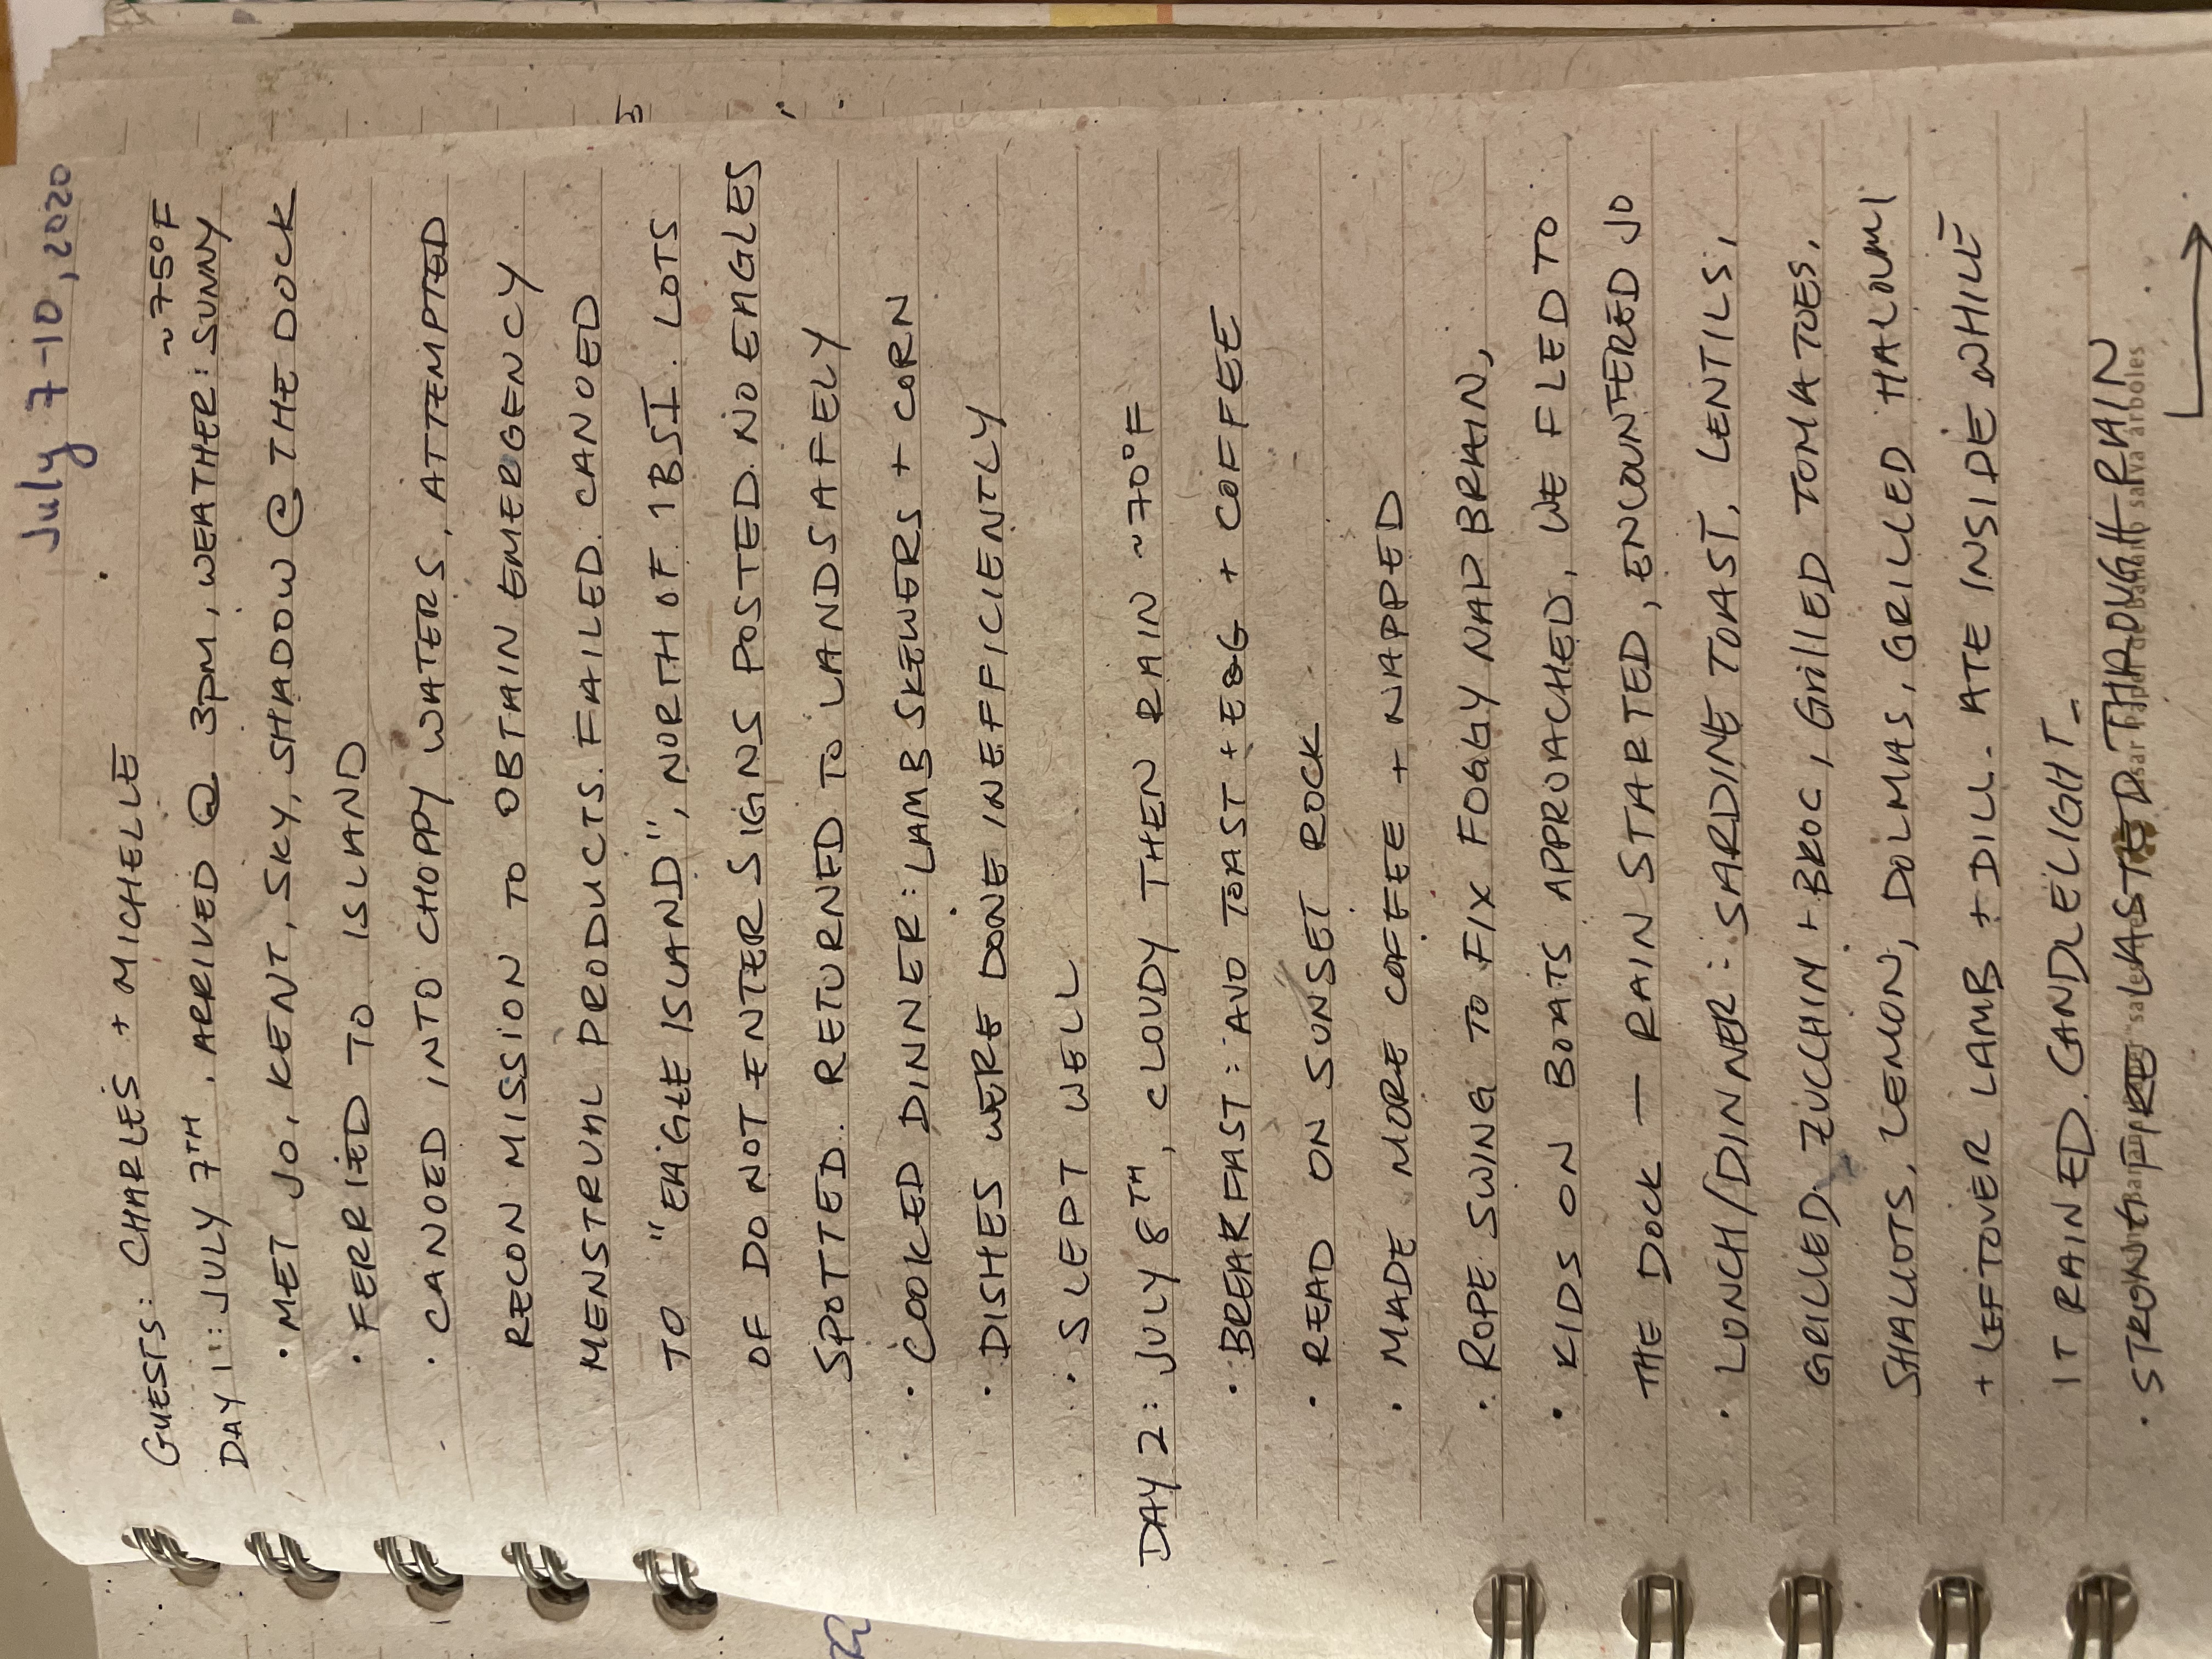 July 7-10, 2020
GUESTS: CHARLES + MICHELLE
~75°F
DAY 1: JULY 7TH. ARRIVED @ 3PM, WEATHER: SUNNY
• MET JO, KENT, SKY, SHADOW @ THE DOCK
• FERRIED TO ISLAND
• CANOED INTO CHOPPY WATERS, ATTEMPTED
RECON MISSION TO OBTAIN EMERGENCY
MENSTRUAL PRODUCTS. FAILED. CANOED
TO "EAGLE ISLAND", NORTH OF 1BSI. LOTS
OF DO NOT ENTER SIGNS POSTED. NO EAGLES
SPOTTED. RETURNED TO LAND SAFELY
• COOKED DINNER: LAMB SKEWERS + CORN
• DISHES WERE DONE INEFFICIENTLY
• SLEPT WELL
DAY 2: JULY 8TH, CLOUDY THEN RAIN ~70°F
• BREAKFAST: AVO TOAST + EGG + COFFEE
• READ ON SUNSET ROCK
• MADE MORE COFFEE + NAPPED
• ROPE SWING TO FIX FOGGY NAP BRAIN,
• KIDS ON BOATS APPROACHED, WE FLED TO
THE DOCK — RAIN STARTED, ENCOUNTERED JO
• LUNCH/DINNER: SARDINE TOAST, LENTILS,
GRILLED ZUCCHINI + BROC, GRILLED TOMATOES,
SHALLOTS, LEMON, DOLMAS, GRILLED HALOUMI
+ LEFTOVER LAMB + DILL. ATE INSIDE WHILE
IT RAINED. CANDLELIGHT.
• STRONG FIRE LASTED THROUGH RAIN
Using Banana Paper saves trees Usar Papel de Banano salva árboles